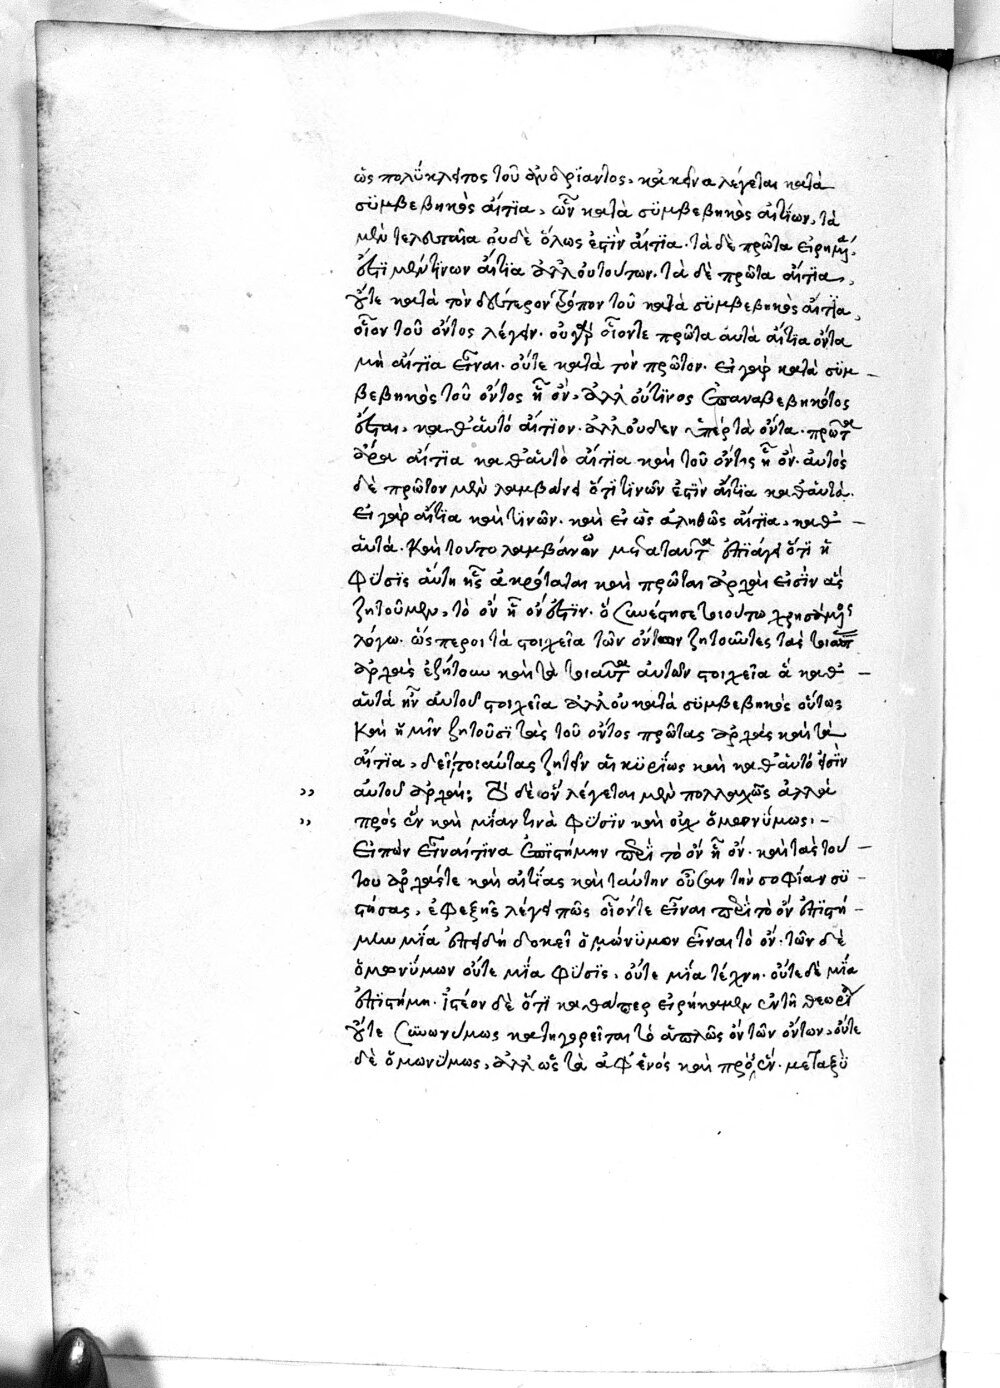 ὡς πολύκλειτος τοῦ ἀνδριάντος, κἀκεῖνα λέγεται κατὰ
συμβεβηκὸς αἴτια, ὧν κατὰ συμβεβηκὸς αἰτίων, τὰ
μὲν τελευταῖα οὐδὲ ὅλως ἐστὶν αἴτια. τὰ δὲ πρῶτα εἰρημένα,
ἔστι μέν τινων αἴτια ἀλλ' οὐ τούτων. τὰ δὲ πρῶτα αἴτια,
οὔτε κατὰ τὸν δεύτερον τρόπον τοῦ κατὰ συμβεβηκὸς αἴτια,
οἷον τοῦ ὄντος λέγειν. οὐ γὰρ οἷόντε πρῶτα αὐτὰ αἴτια ὄντα
μὴ αἴτια εἶναι. οὔτε κατὰ τὸν πρῶτον. εἰ γὰρ κατὰ συμ –
βεβηκὸς τοῦ ὄντος ἧ ὄν, ἀλλ' οὔτινος ἐπαναβεβηκότος
ἔσται, καθ' αὑτό αἴτιον. ἀλλ' οὐδεν ὑπὲρ τὰ ὄντα. πρῶτα
ἄρα αἴτια καθ' αὑτὸ αἴτια καὶ τοῦ ὄντος ἧ ὄν. αὐτὸς
δὲ πρῶτον μὲν λαμβάνει ὅτι τινῶν ἐστὶν αἴτια καθ' αὑτά.
εἰ γὰρ αἴτια καὶ τινῶν. καὶ εἰ ὡς ἀληθῶς αἴτια, καθ' –
αὑτά. Καὶ τοῦτο λαμβάνων μετὰ ταῦτα ἐπιάγει ὅτι ἡ
φύσις αὕτη ἧς ἀκρόταται καὶ πρῶται ἀρχαὶ εἰσὶν ἃς
ζητοῦμεν, τὸ ὂν ἧ ὄν ἐστιν. ὃ συνέστησε τοιούτω χρησάμενος
λόγω. ὥσπερ οἱ τὰ στοιχεῖα τῶν ὄντων ζητοῦντες τὰς τοιαύτας
ἀρχὰς ἐζήτουν καὶ τὰ τοιαῦτα αὐτῶν στοιχεῖα ἃ καθ' –
αὑτά ἦν αὐτοῦ στοιχεῖα ἀλλ' οὐ κατὰ συμβεβηκὸς οὕτως
Καὶ ἡμῖν ζητοῦσι τὰς τοῦ ὄντος πρώτας ἀρχὰς καὶ τὰ
αἴτια, δεῖ τοιαύτας ζητεῖν αἳ κυρίως καὶ καθ' αὑτό εἰσὶν
αὐτοῦ ἀρχαί; Τὸ δὲ ὂν λέγεται μὲν πολλαχῶς ἀλλὰ
πρὸς ἓν καὶ μίαν τινὰ φύσιν καὶ οὐχ ὁμωνύμως. –
Εἰπὼν εἶναί τινα ἐπιστήμην περὶ τὸ ὂν ἧ ὄν. καὶ τὰς τού –
του ἀρχάς τε καὶ αἰτίας καὶ ταύτην οὖσαν τὴν σοφίαν συ –
στήσας, ἐφεξῆς λέγει πῶς οἷόντε εἶναι περὶ τὸ ὂν ἐπιστή –
μην μία ἐπειδὴ δοκεῖ ὁμώνυμον εἶναι τὸ ὄν. τῶν δὲ
ὁμωνύμων οὔτε μία φύσις, οὔτε μία τέχνη. οὔτε δὲ μία
ἐπιστήμη. ἰστέον δὲ ὅτι καθάπερ εἰρήκαμεν ἐν τῆ θεωρία
οὔτε συνωνύμως κατηγορεῖται τὸ ἁπλῶς ὂν τῶν ὄντων, οὔτε
δὲ ὁμωνύμως, ἀλλ' ὡς τὰ ἀφ' ἑνός καὶ πρὸς ἕν. μεταξὺ